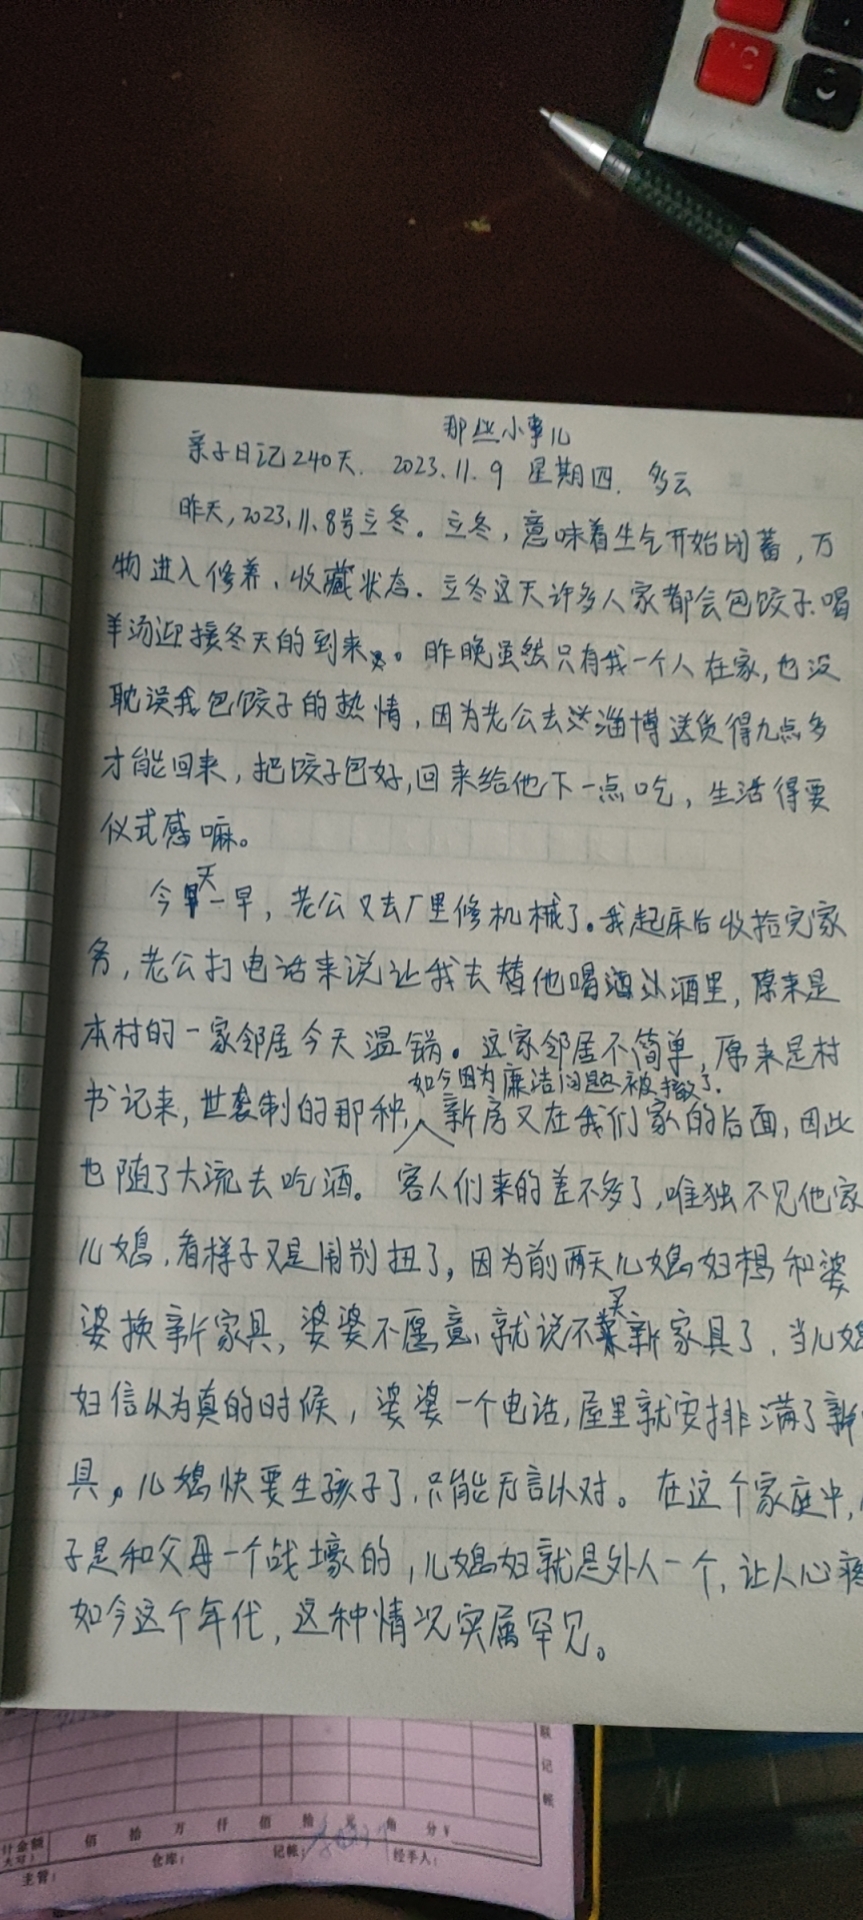 那些小事儿
亲子日记240天. 2023.11.9 星期四. 多云
昨天,2023.11.8号立冬。立冬,意味着生气开始闭蓄,万
物进入修养、收藏状态.立冬这天许多人家都会包饺子.喝
羊汤迎接冬天的到来。昨晚虽然只有我一个人在家,也没
耽误我包饺子的热情,因为老公去淄博送货得九点多
才能回来,把饺子包好,回来给他下一点吃,生活得要
仪式感嘛。
今天一早,老公又去厂里修机械了。我起床后收拾完家
务,老公打电话来说让我去替他喝酒,原来是
本村的一家邻居今天温锅。这家邻居不简单,原来是村
如今因为廉洁问题被撤了.
书记来,世袭制的那种,新房又在我们家的后面,因此
也随了大流去吃酒。客人们来的差不多了,唯独不见他家
儿媳,看样子又是闹别扭了,因为前两天儿媳妇想和婆
婆换新家具,婆婆不愿意,就说不买新家具了,当儿媳
妇信以为真的时候,婆婆一个电话,屋里就安排满了新
具,儿媳快要生孩子了,只能无言以对。在这个家庭中,
子是和父母一个战壕的,儿媳妇就是外人一个,让人心疼
如今这个年代,这种情况实属罕见。
佰 拾 万 仟 佰 拾 元 角 分¥
主管: 仓库: 记帐: 经手人:
联
记
帐